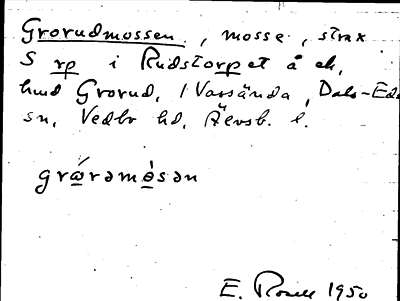 Grorudmossen, mosse, strax
S rp i Rudstorpet å ek.
hmd Grorud, i Vassända, Dals-Eds
sn, Vedbo hd, Älvsb. l.
grώ̲rəmòsən
E. Rosell 1950